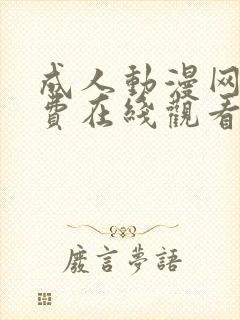 成人動漫网
费在綫觀看
廢言夢語